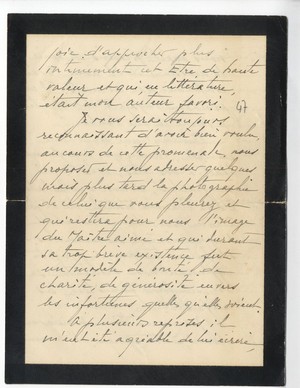 joie d'approcher plus
intimement cet Etre de haute
valeur et qui, en littérature,
était mon auteur favori.
47
Je vous serai toujours
reconnaissant d'avoir bien voulu,
au cours de cette promenade, nous
proposer et nous adresser quelques
mois plus tard la photographie
de celui que vous pleurez et
qui restera pour nous l'image
du Maître aimé et qui durant
sa trop brève existence fut
un modèle de bonté, de
charité, de générosité envers
les infortunes quelles qu'elles soient.
A plusieurs reprises il
m'eut été agréable de lui écrire,